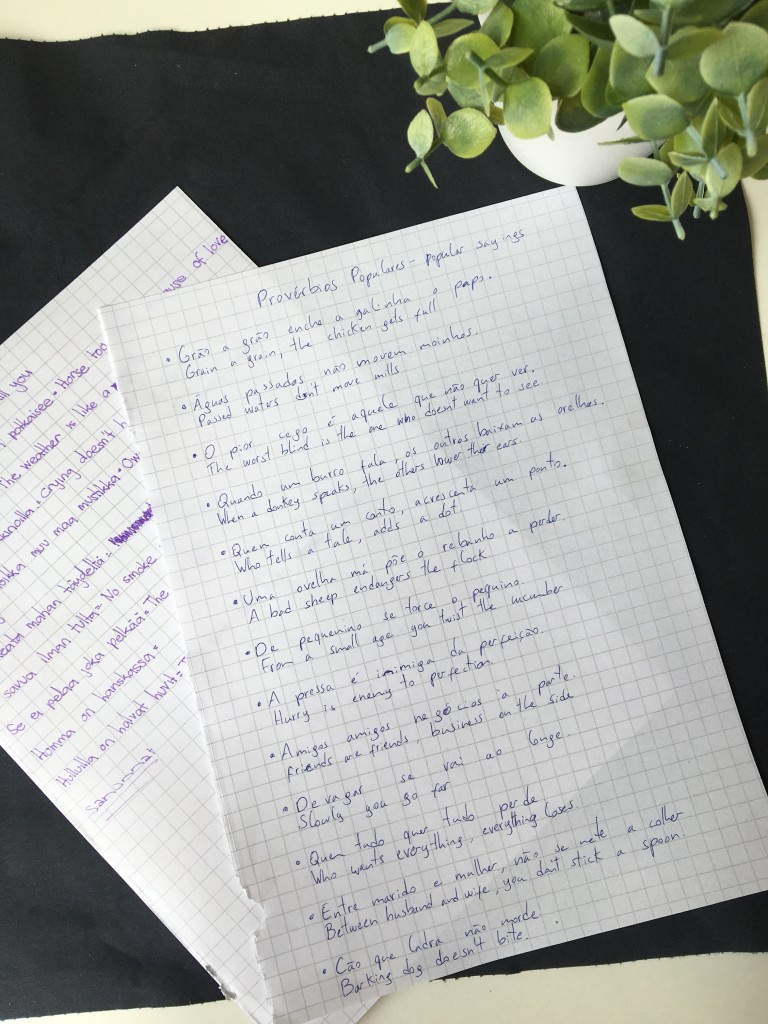 Provérbios Populares - popular sayings
• Grão a grão enche a galinha o papo.
Grain a grain, the chicken gets full
• Águas passadas não movem moinhos.
Passed waters don't move mills
• O pior cego é aquele que não quer ver.
The worst blind is the one who doesn't want to see.
• Quando um burro fala, os outros baixam as orelhas.
When a donkey speaks, the others lower their ears.
• Quem conta um conto, acrescenta um ponto.
Who tells a tale, adds a dot.
• Uma ovelha má põe o rebanho a perder.
A bad sheep endangers the flock
• De pequenino se torce o pepino.
From a small age you twist the cucumber
• A pressa é inimiga da perfeição.
Hurry is enemy to perfection.
• Amigos amigos negócios à parte.
Friends are friends, business on the side
• Devagar se vai ao longe.
Slowly you go far
• Quem tudo quer tudo perde
Who wants everything, everything loses.
• Entre marido e mulher, não se mete a colher
Between husband and wife, you don't stick a spoon.
• Cão que ladra não morde
Barking dog doesn't bite.
of love
you
polkaisee = Horse too
The weather is like a
Crying doesn't h
muu maa mustikka = Ow
mahan täydeltä =
savua ilman tulta = No smoke
Se ei pelaa joka pelkää = The
Homma on hanskassa =
Hulluilla on halvat huvit =
Sanonnat